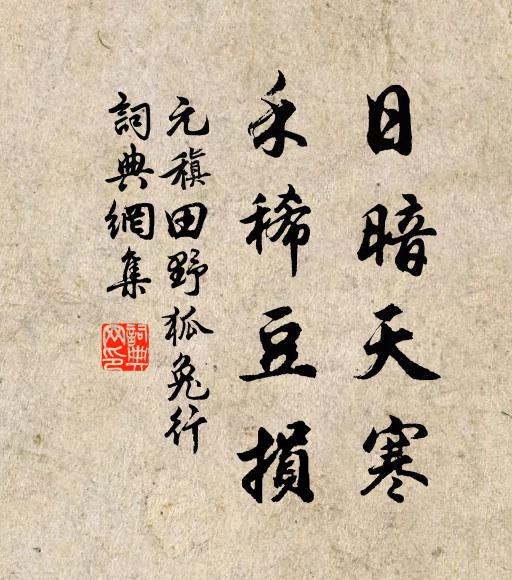 日暗天寒
禾稀豆損
元稹田野狐兔行
詞典網集
詞典网印